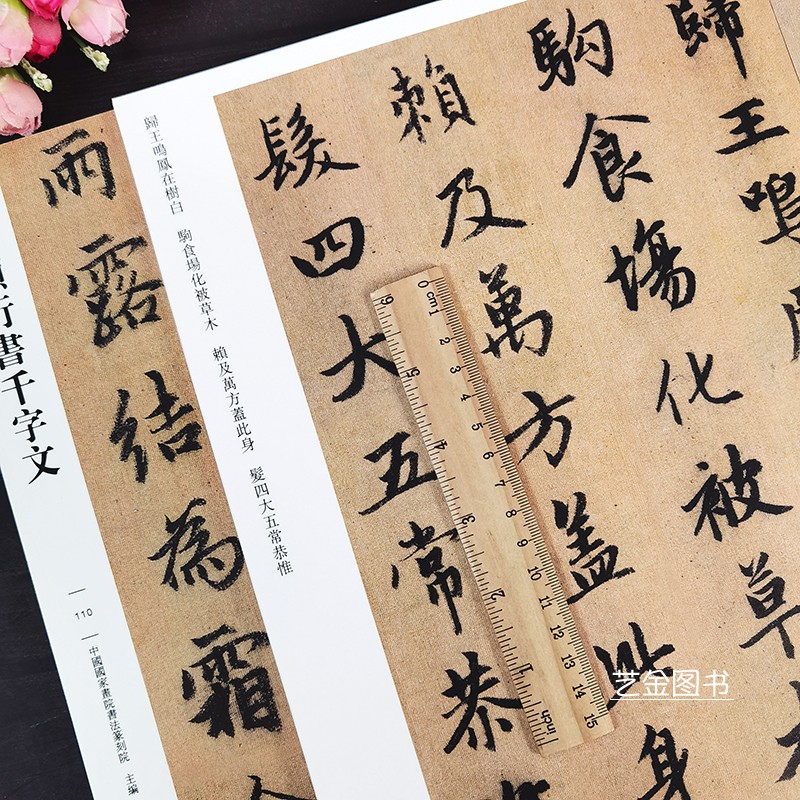 歸王鳴
駒食場化被草
賴及萬方蓋此身
髮四大五常恭
歸王鳴鳳在樹白　駒食場化被草木　賴及萬方蓋此身　髮四大五常恭惟
雨露結為霜
行書千字文
110
中國國家畫院書法篆刻院　主編
0 cm1 2 3 4 5 6 7 8 9 10 11 12 13 14 15
inch 1 2 3 4 5 6
艺金图书